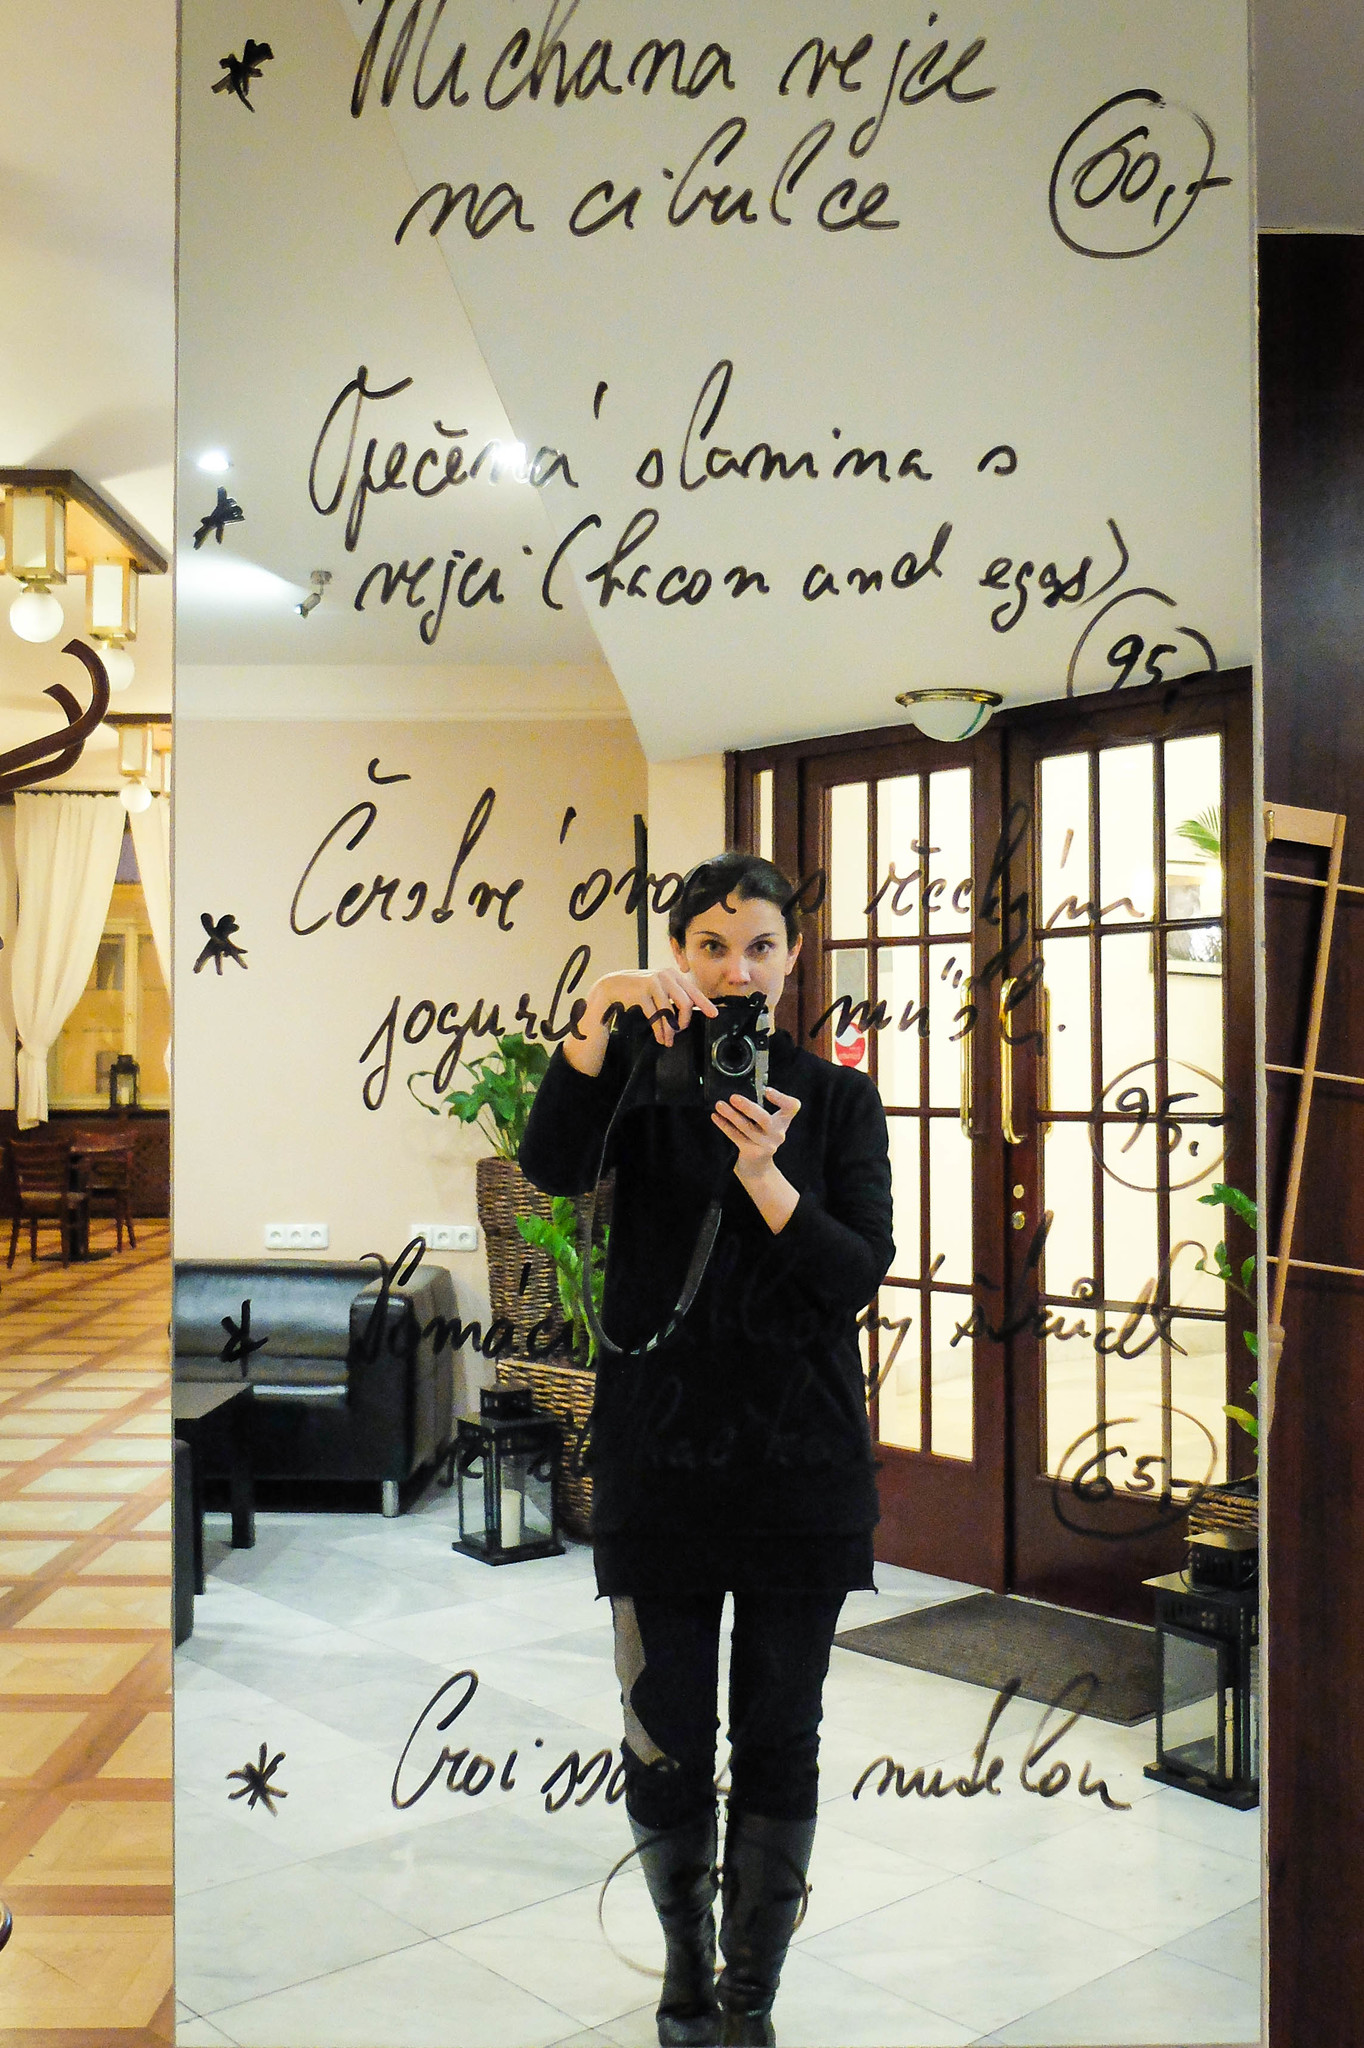 * Míchaná vejce
na cibulce 60,-
* Opečená slanina s
vejci (bacon and eggs)
95,-
* Čerstvé ovoce s řeckým
jogurtem müsli
95,-
* Domácí štrúdl
se šlehačkou
65,-
* Croissant s máslem